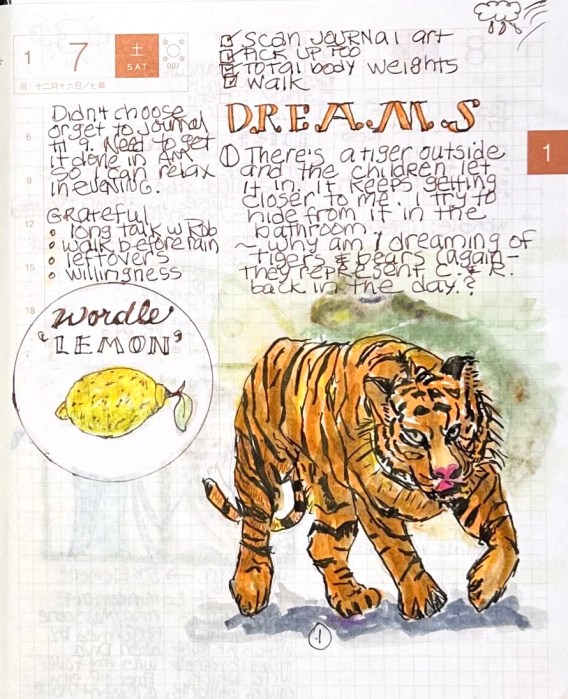 1 7 土 SAT. 007
旧:十二月十六日/七草
SCAN JOURNAL art
PICK UP TOO
TOTAL body weights
WALK
Didn't choose
or get to journal
til 9. Need to get
it done in AM
so I can relax
in EVENING.
GRATEFUL
• long talk w Rob
• walk before rain
• leftovers
• willingness
DREAMS
① There's a tiger outside
and the children let
it in. It keeps getting
closer to me. I try to
hide from it in the
bathroom.
~ Why am I dreaming of
tigers & bears (again -
they represent C. & R.
back in the day.?
1
6
9
12
15
18
Wordle
"LEMON"
①